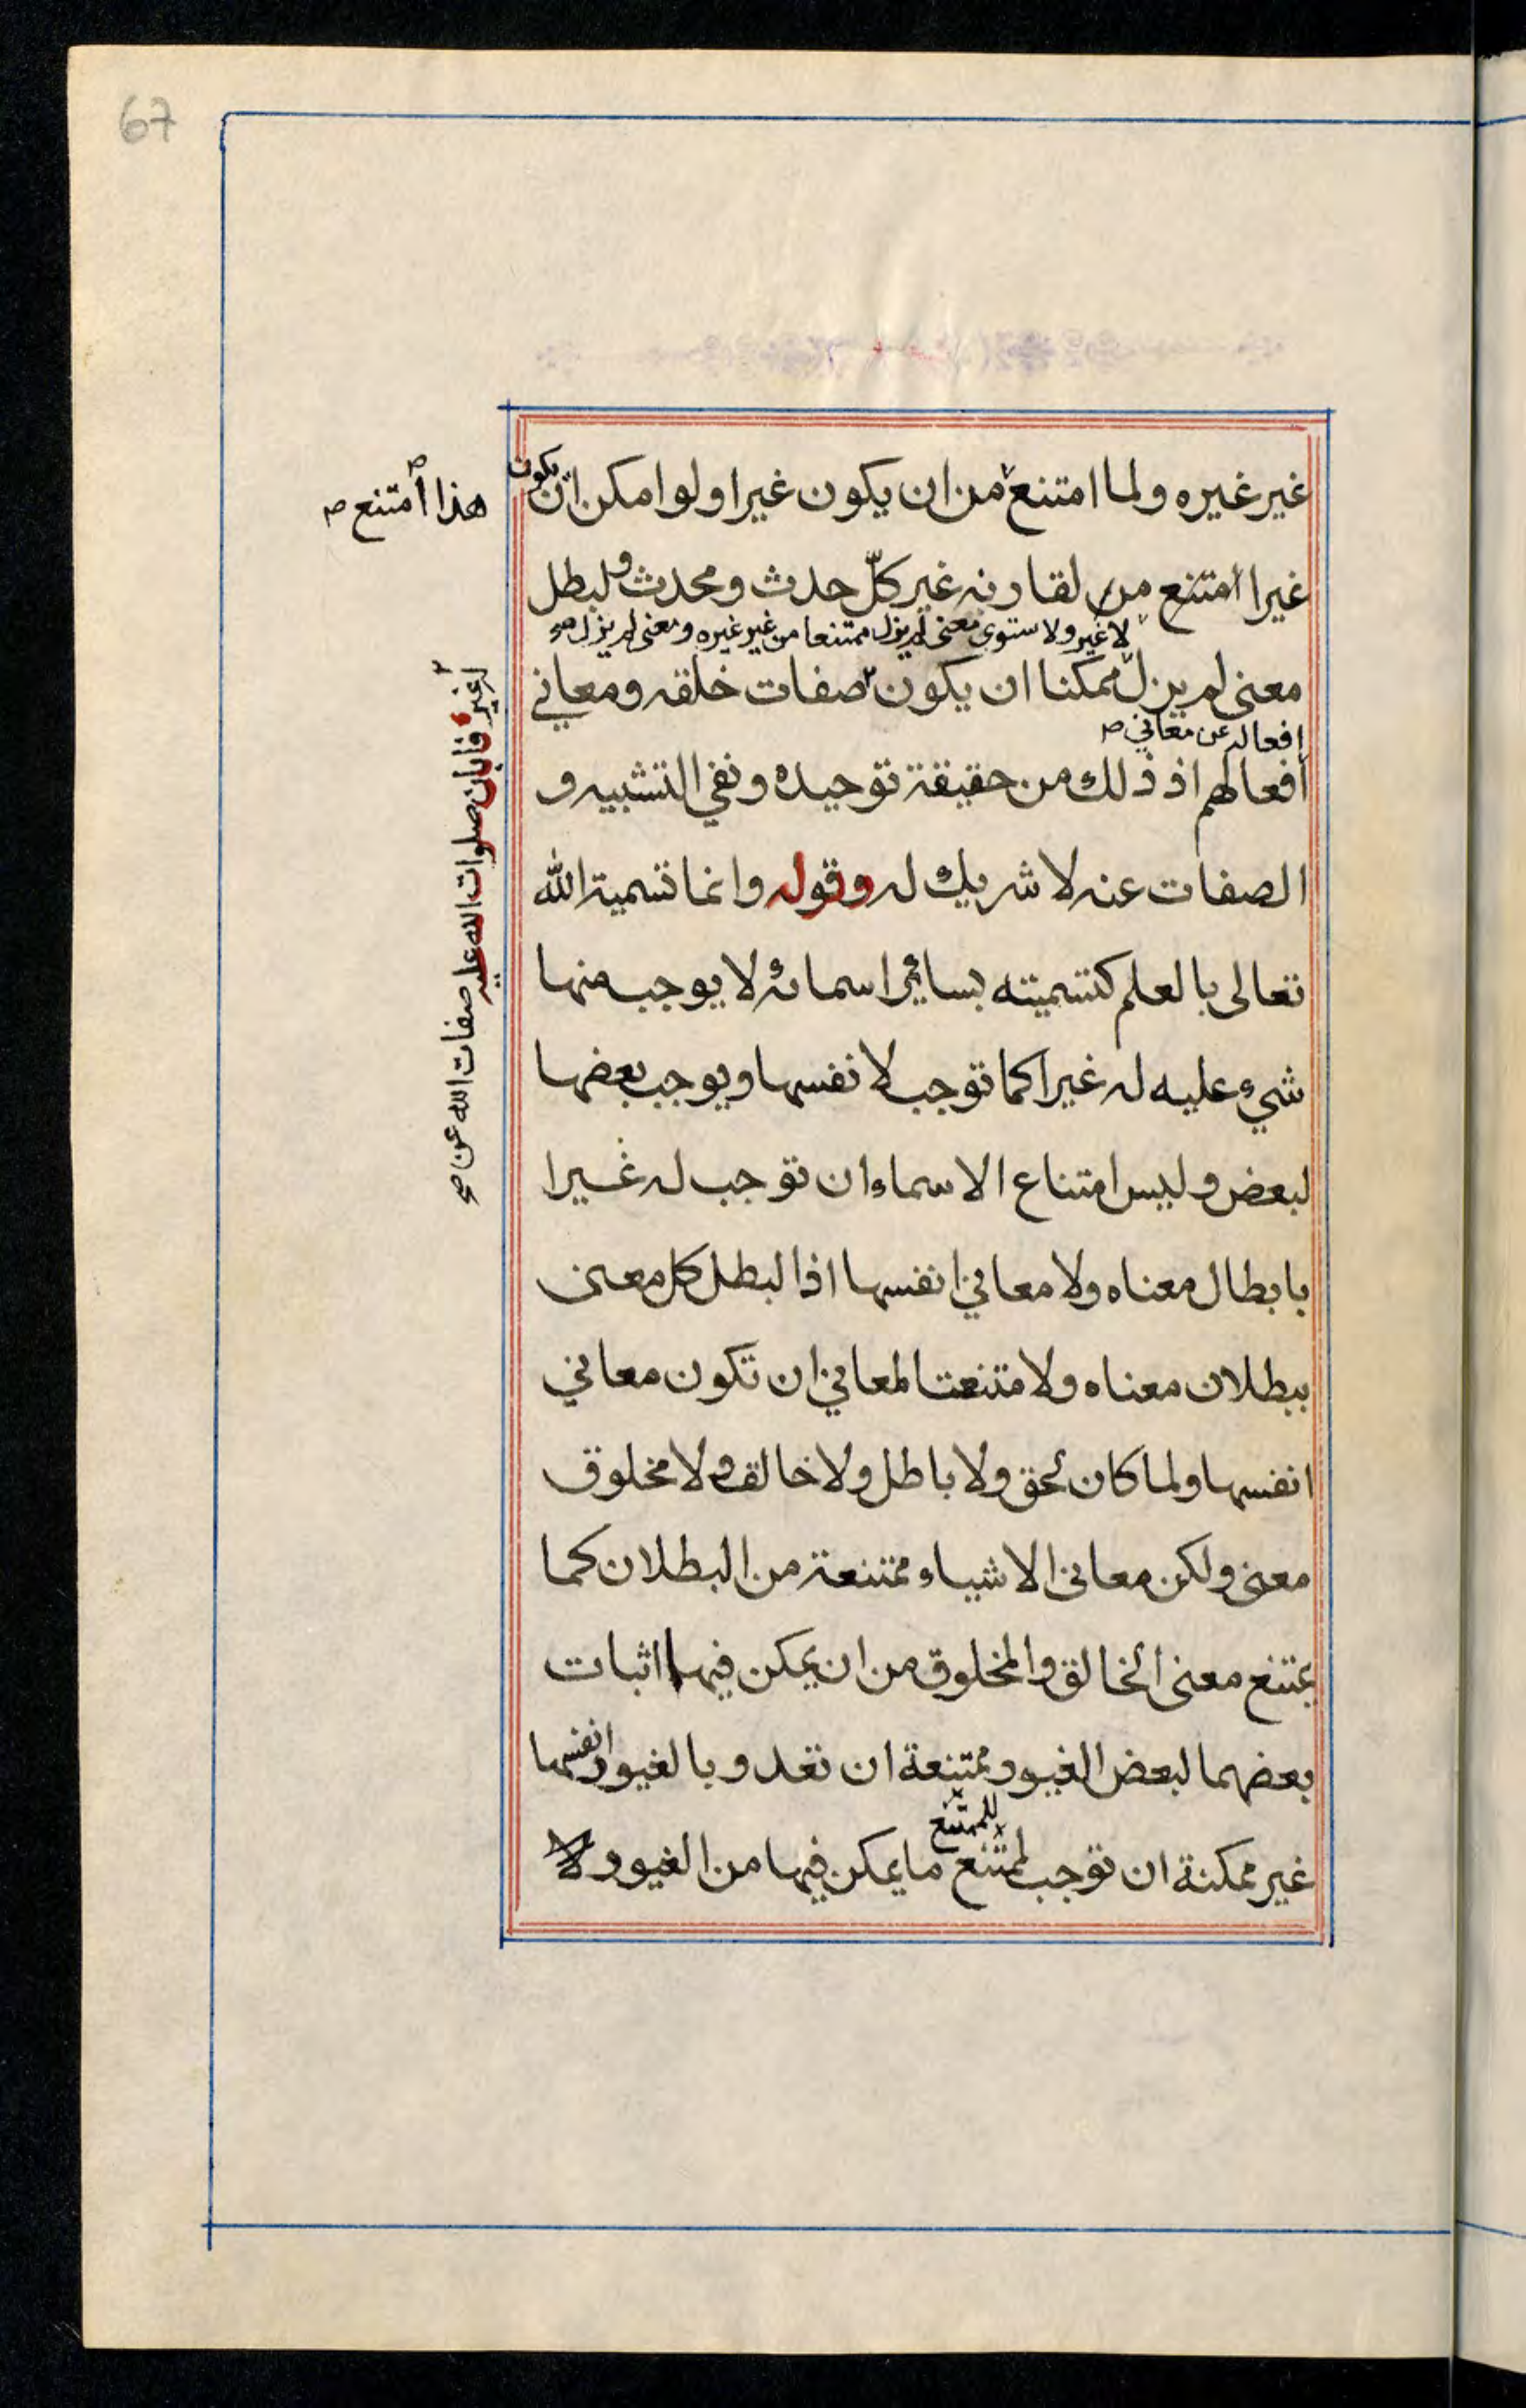 67
غير غيره ولما امتنع من ان يكون غيرا ولو امكن ان يكون
هذا امتنع ص
غيرا امتنع من لقارنه غير كلّ حدث ومحدث ولبطل
لا غير ولا ستوى معنى لم يزل ممتنعا من غير غيره ومعنى لم يزل صح
معنى لم يزل ممكنا ان يكون صفات خلقه ومعاني
له غير فابان صلوات الله عليه صفات الله عن صح
افعاله عن معاني ص
افعالهم اذ ذلك من حقيقة توحيده ونفي التشبيه و
الصفات عنه لا شريك له وقوله وانما تسمية الله
تعالى بالعلم كتسميته بسائر اسمائه لا يوجب منها
شيء عليه له غيرا كما توجب لانفسها ويوجب بعضها
لبعض وليس امتناع الاسماء ان توجب له غيرا
بابطال معناه ولا معاني انفسها اذا لبطل كل معنى
ببطلان معناه ولامتنعت المعاني ان تكون معاني
انفسها ولما كان لحق ولا باطل ولا خالق ولا مخلوق
معنى ولكن معاني الاشياء ممتنعة من البطلان كما
يمتنع معنى الخالق والمخلوق من ان يمكن فيها اثبات
بعضهما لبعض الغيور ممتنعة ان تعدو بالغيور انفسها
للممتنع
غير ممكنة ان توجب لممتنع ما يمكن فيها من الغيور ولا